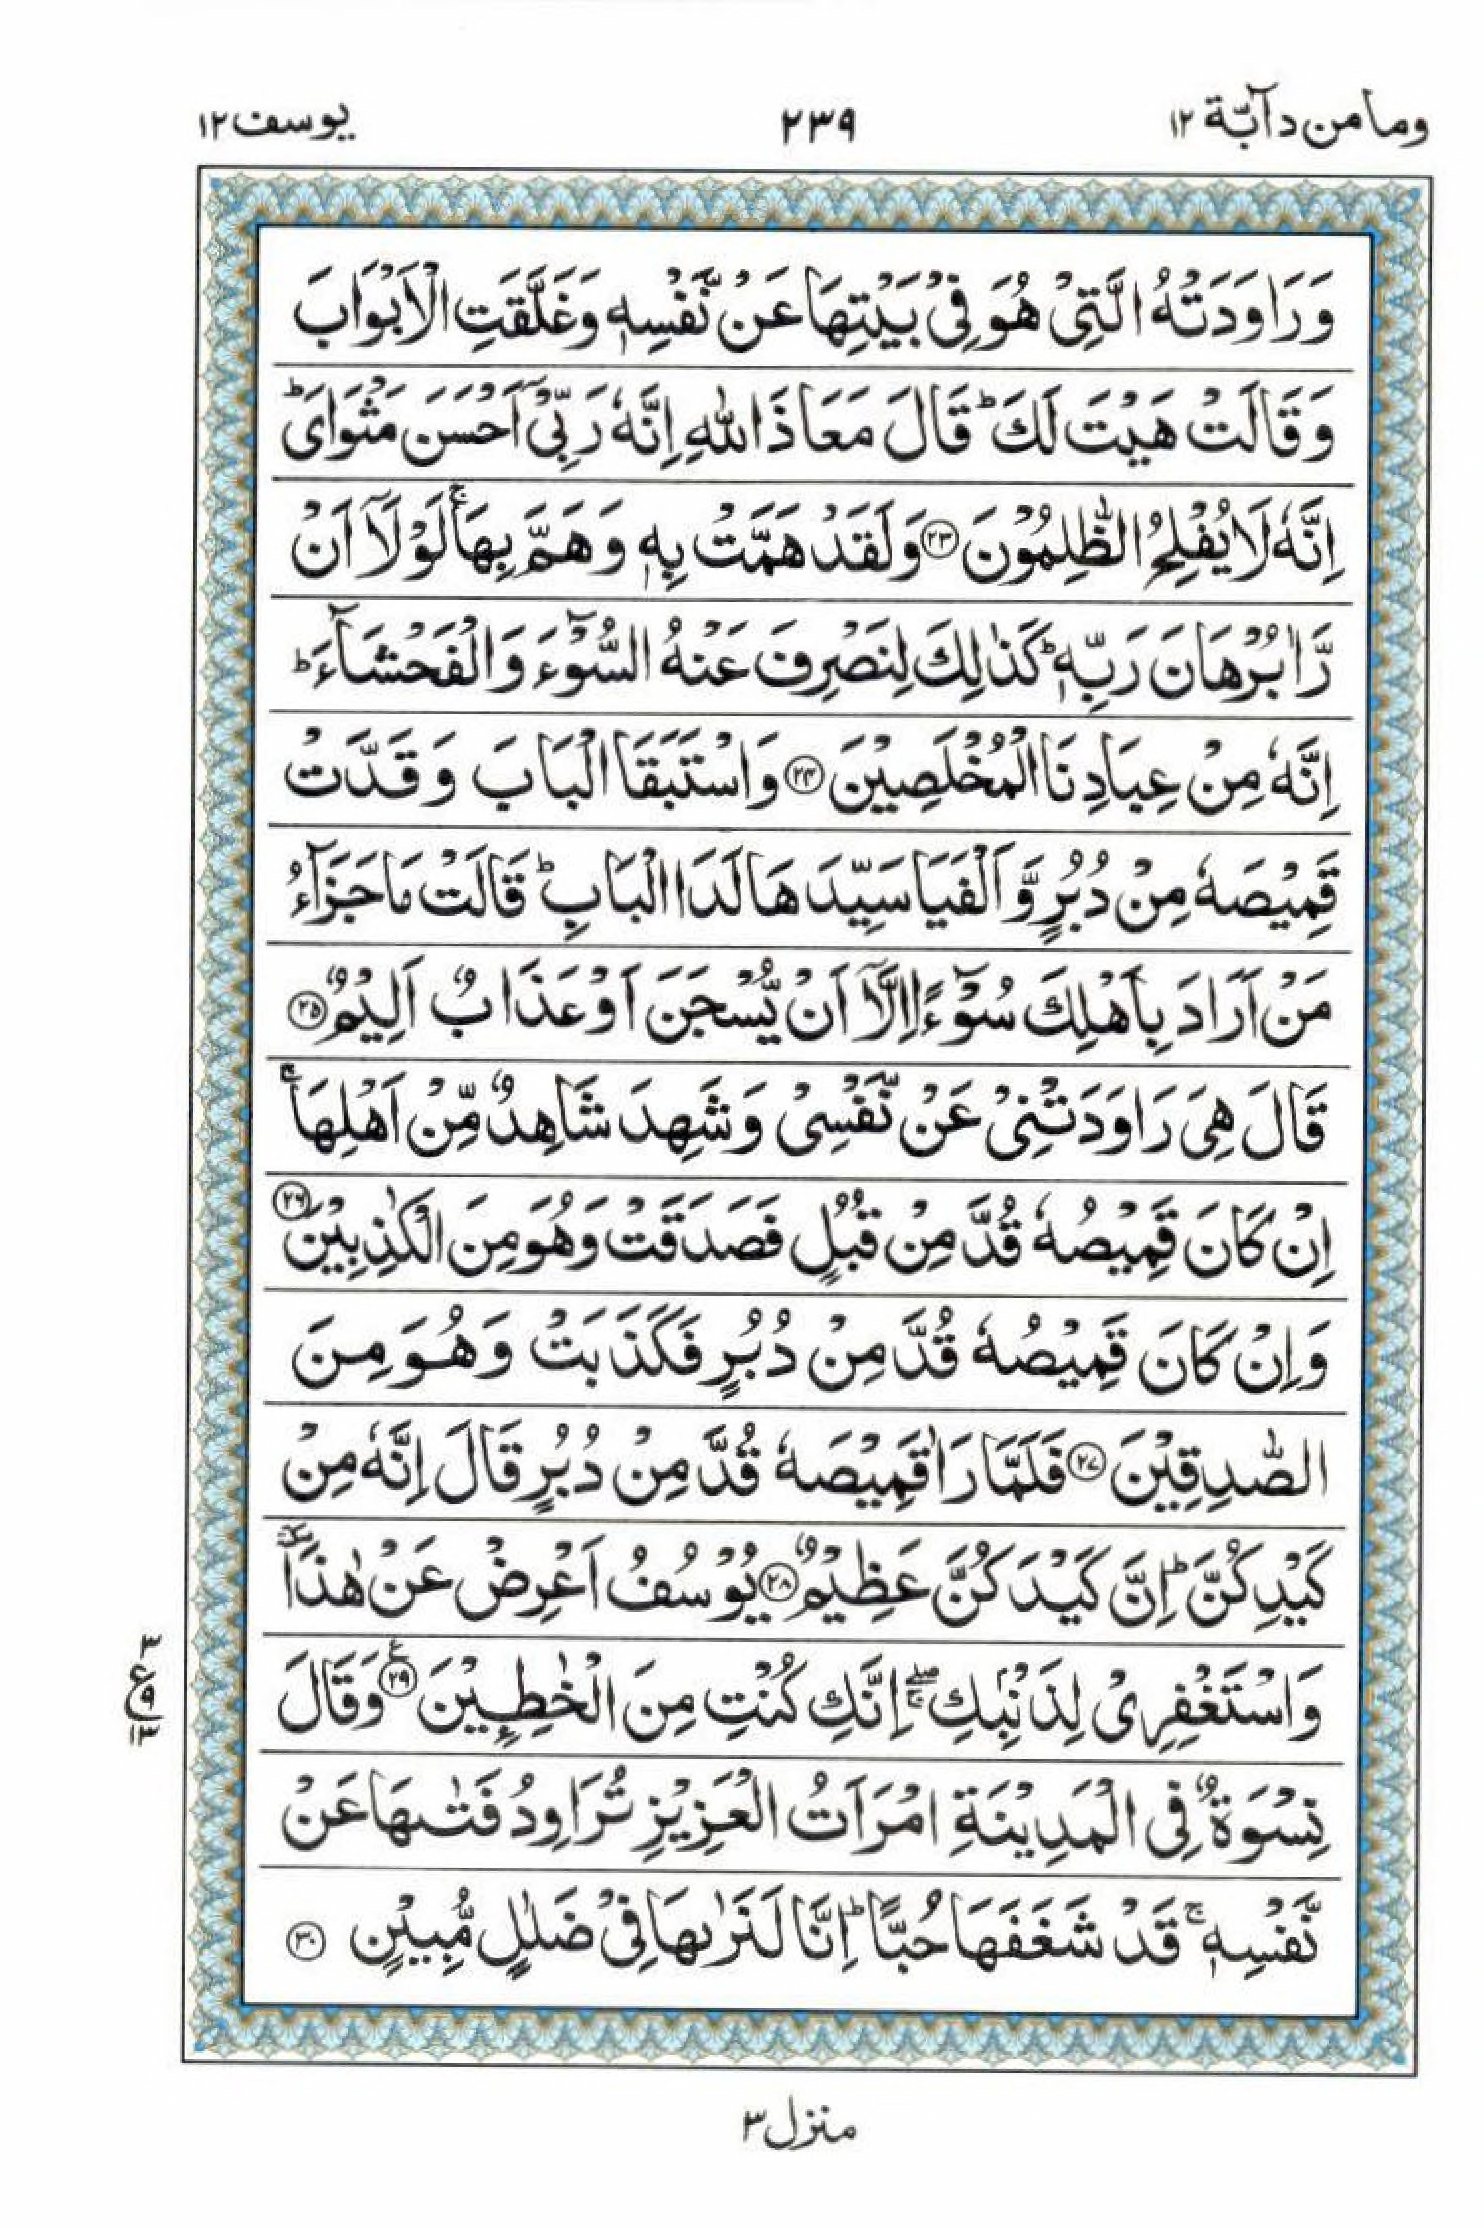 وما من دآبّة ۱۲ ۲۳۹ یوسف ۱۲
وَرَاوَدَتْهُ الَّتِیْ هُوَ فِیْ بَیْتِهَا عَنْ نَّفْسِهٖ وَغَلَّقَتِ الْاَبْوَابَ
وَقَالَتْ هَیْتَ لَكَ ؕ قَالَ مَعَاذَ اللّٰهِ اِنَّهٗ رَبِّیْۤ اَحْسَنَ مَثْوَایَ ؕ
اِنَّهٗ لَا یُفْلِحُ الظّٰلِمُوْنَ ﴿۲۳﴾ وَلَقَدْ هَمَّتْ بِهٖ وَهَمَّ بِهَا ۚ لَوْلَاۤ اَنْ
رَّاٰ بُرْهَانَ رَبِّهٖ ؕ كَذٰلِكَ لِنَصْرِفَ عَنْهُ السُّوْٓءَ وَالْفَحْشَآءَ ؕ
اِنَّهٗ مِنْ عِبَادِنَا الْمُخْلَصِیْنَ ﴿۲۴﴾ وَاسْتَبَقَا الْبَابَ وَقَدَّتْ
قَمِیْصَهٗ مِنْ دُبُرٍ وَّاَلْفَیَا سَیِّدَهَا لَدَا الْبَابِ ؕ قَالَتْ مَا جَزَآءُ
مَنْ اَرَادَ بِاَهْلِكَ سُوْٓءًا اِلَّاۤ اَنْ یُّسْجَنَ اَوْ عَذَابٌ اَلِیْمٌ ﴿۲۵﴾
قَالَ هِیَ رَاوَدَتْنِیْ عَنْ نَّفْسِیْ وَشَهِدَ شَاهِدٌ مِّنْ اَهْلِهَا ۚ
اِنْ كَانَ قَمِیْصُهٗ قُدَّ مِنْ قُبُلٍ فَصَدَقَتْ وَهُوَ مِنَ الْكٰذِبِیْنَ ﴿۲۶﴾
وَاِنْ كَانَ قَمِیْصُهٗ قُدَّ مِنْ دُبُرٍ فَكَذَبَتْ وَهُوَ مِنَ
الصّٰدِقِیْنَ ﴿۲۷﴾ فَلَمَّا رَاٰ قَمِیْصَهٗ قُدَّ مِنْ دُبُرٍ قَالَ اِنَّهٗ مِنْ
كَیْدِكُنَّ ؕ اِنَّ كَیْدَكُنَّ عَظِیْمٌ ﴿۲۸﴾ یُوْسُفُ اَعْرِضْ عَنْ هٰذَا ٚ
وَاسْتَغْفِرِیْ لِذَنْۢبِكِ ۖۚ اِنَّكِ كُنْتِ مِنَ الْخٰطِـِٕیْنَ ﴿۲۹﴾ وَقَالَ
۳ ع ۹ ۱۳
نِسْوَةٌ فِی الْمَدِیْنَةِ امْرَاَتُ الْعَزِیْزِ تُرَاوِدُ فَتٰىهَا عَنْ
نَّفْسِهٖ ۚ قَدْ شَغَفَهَا حُبًّا ؕ اِنَّا لَنَرٰىهَا فِیْ ضَلٰلٍ مُّبِیْنٍ ﴿۳۰﴾
منزل ۳